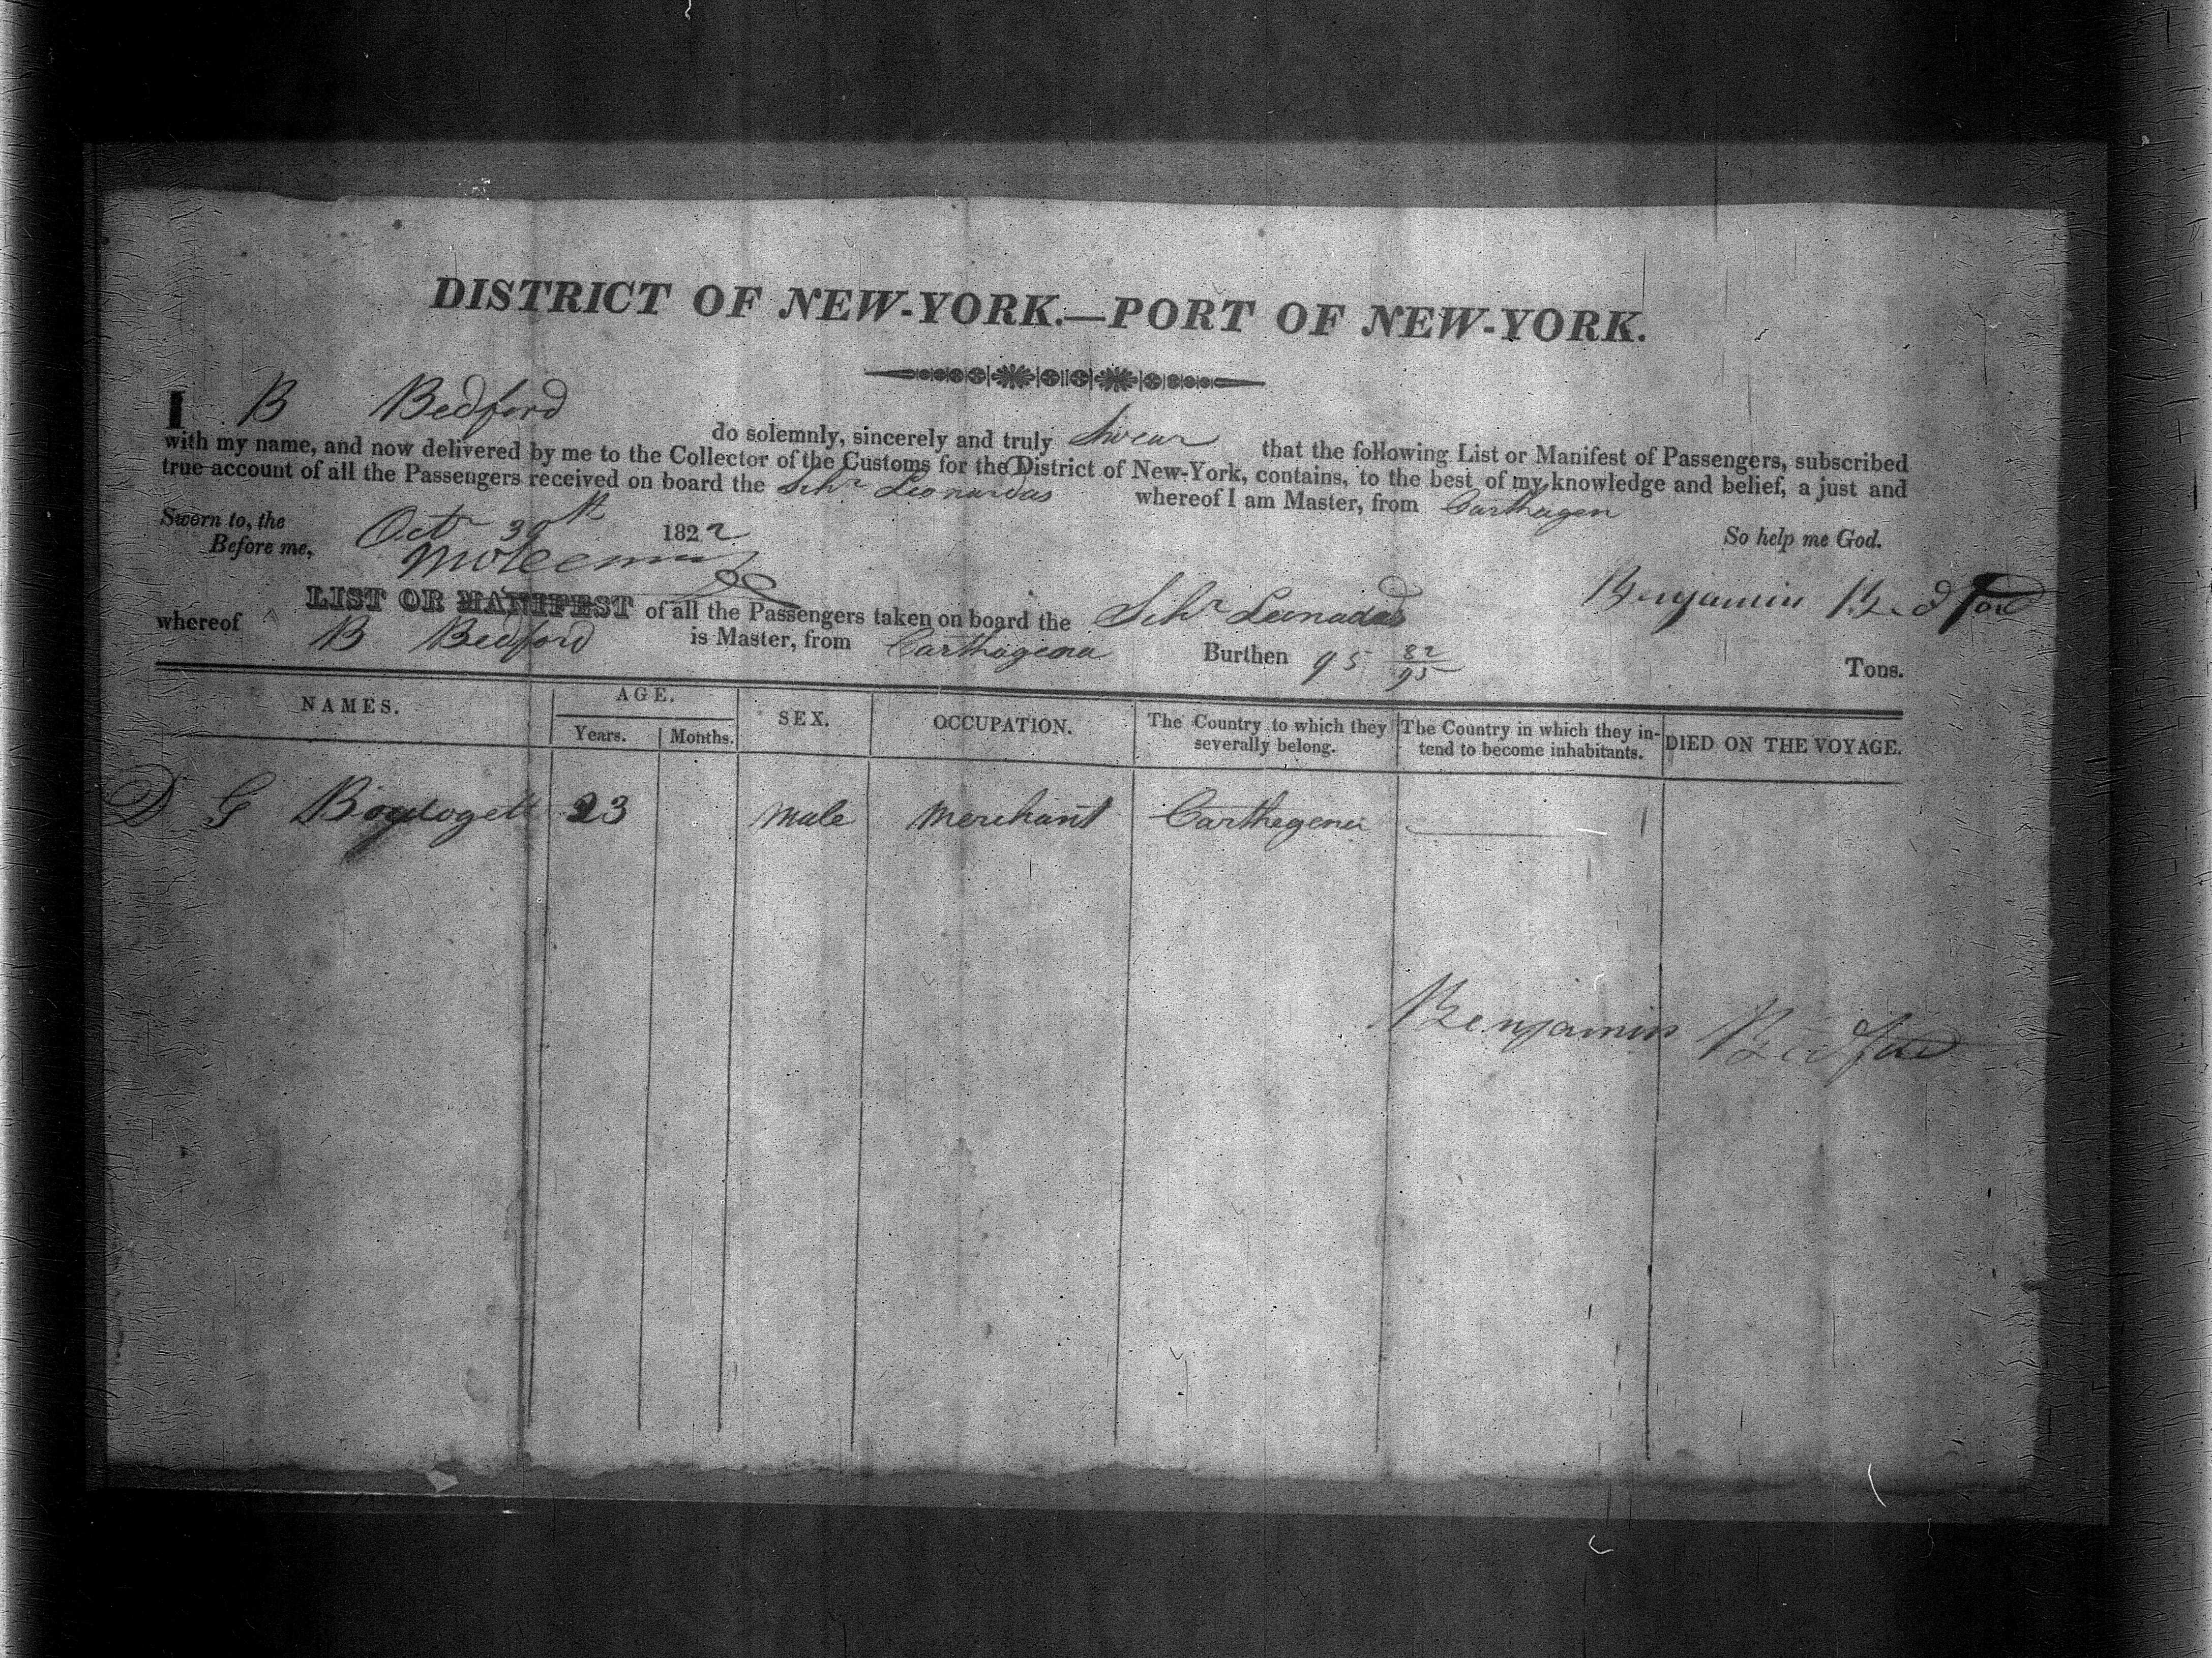 DISTRICT OF NEW-YORK.—PORT OF NEW-YORK.
I B Bedford do solemnly, sincerely and truly Swear that the following List or Manifest of Passengers, subscribed
with my name, and now delivered by me to the Collector of the Customs for the District of New-York, contains, to the best of my knowledge and belief, a just and
true account of all the Passengers received on board the Schr Leonardas whereof I am Master, from Carthagen
Sworn to, the Oct 30th 1822 So help me God.
Before me,
Benjamin Bedford
LIST OR MANIFEST of all the Passengers taken on board the Schr
whereof B Bedford is Master, from Carthagena Burthen 95 82/95 Tons.
NAMES. AGE. SEX. OCCUPATION. The Country to which they severally belong. The Country in which they intend to become inhabitants. DIED ON THE VOYAGE.
Years. Months.
D G 23 Male Merchant Carthegena
Benjamin Bedford